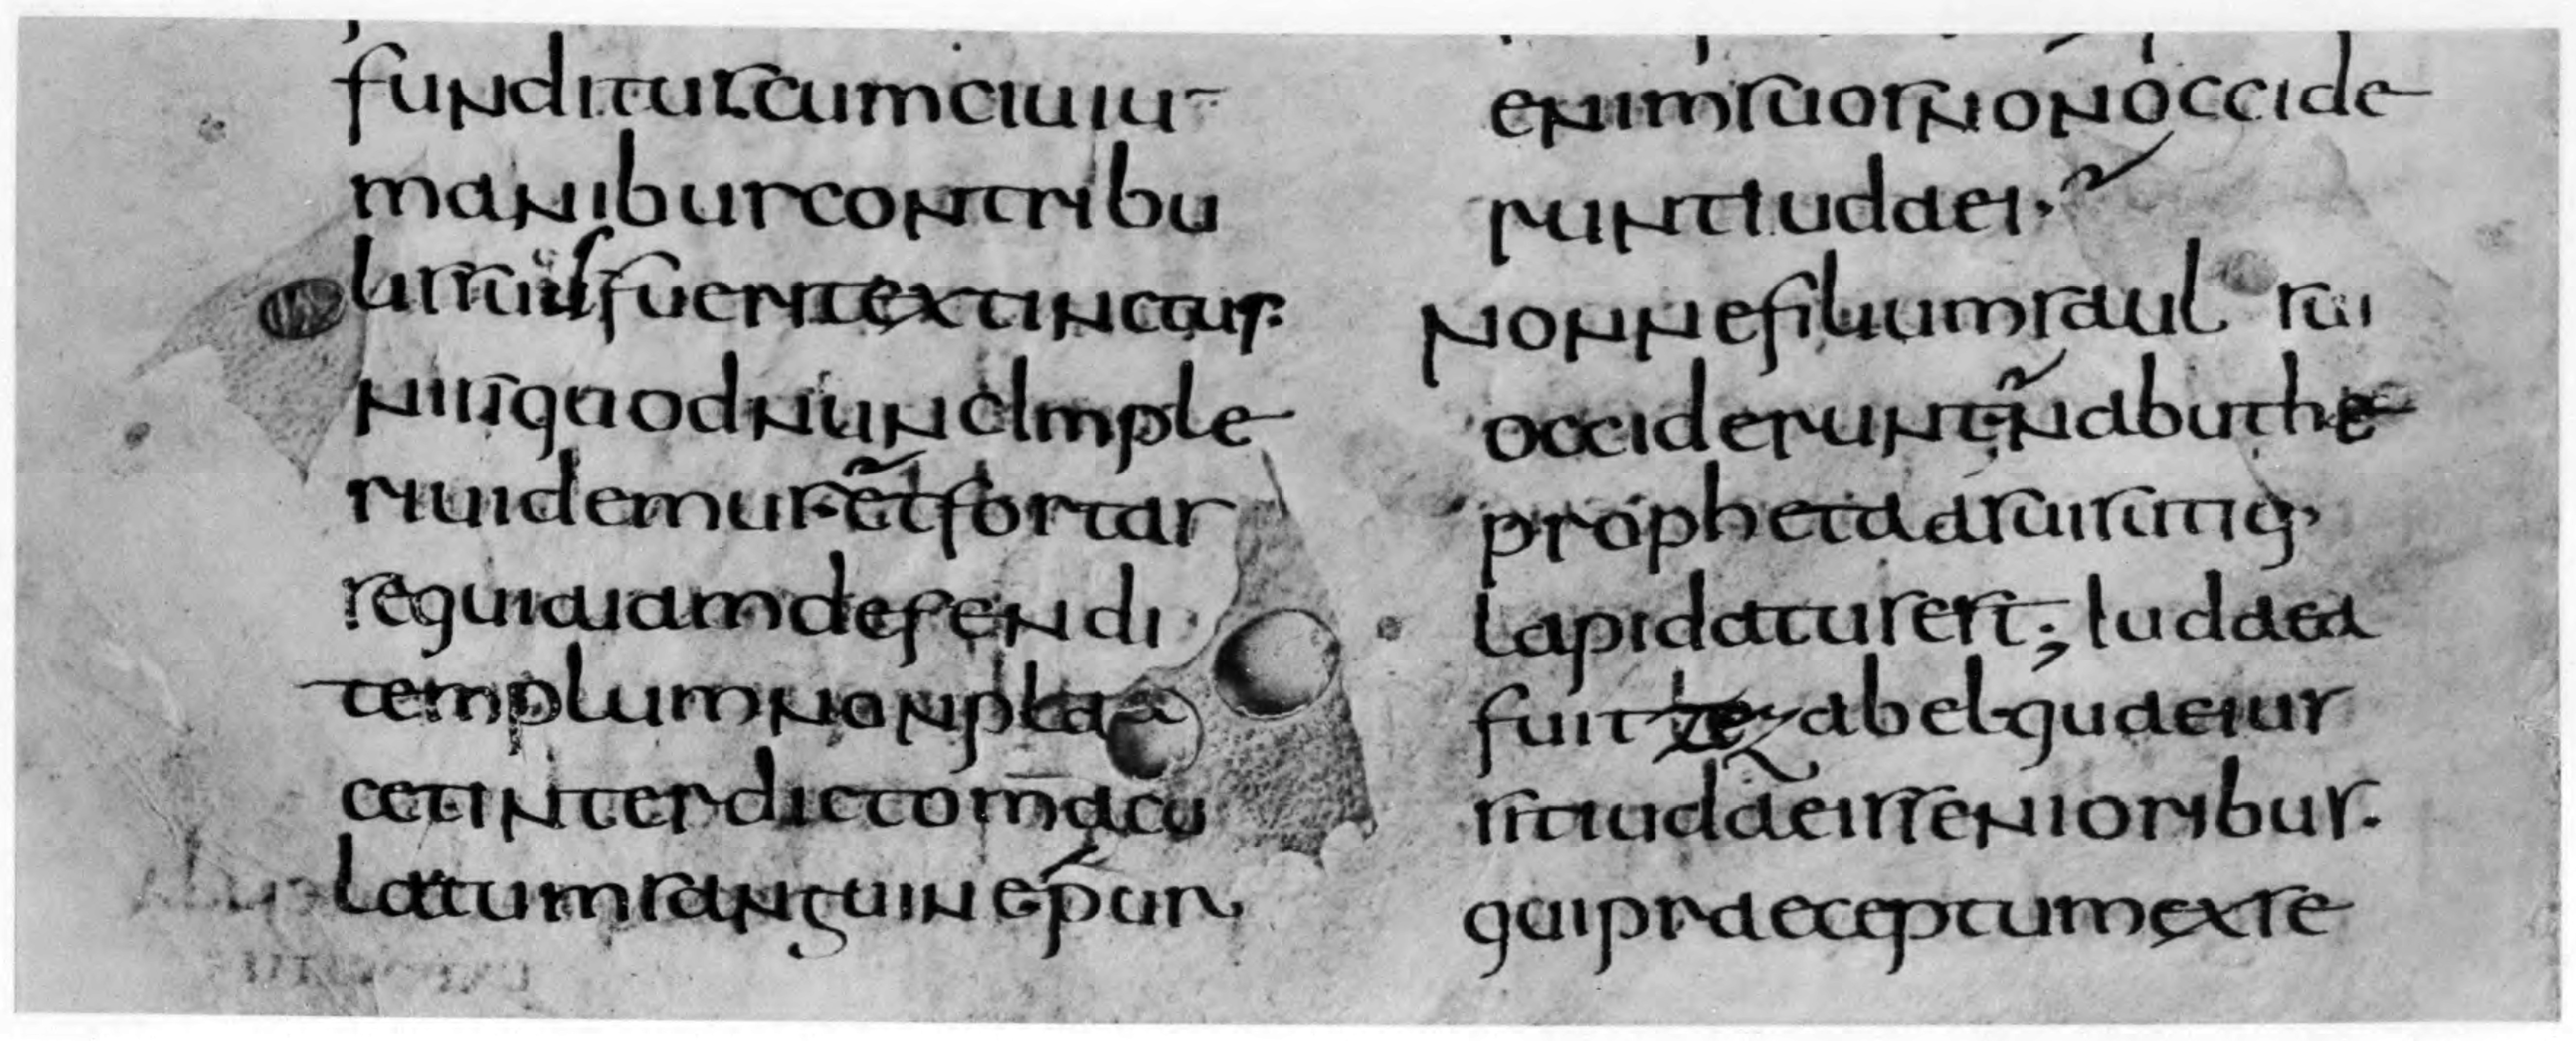 funditur cum ciuiu-
manibus contribu
lis suis fuerit extinctus.
nisi quod nunc imple
ri uidemus et fortas
se quia iam defendi
templum non pla
cet interdicto macu
latum sanguine
enim suos non occide
runt iudaei.
nonne filium saul sui
occiderunt. nabuthe
propheta a suis
lapidatus est; Iudaea
fuit iezabel quae ius
sit iudaeis senioribus.
qui praeceptum exse